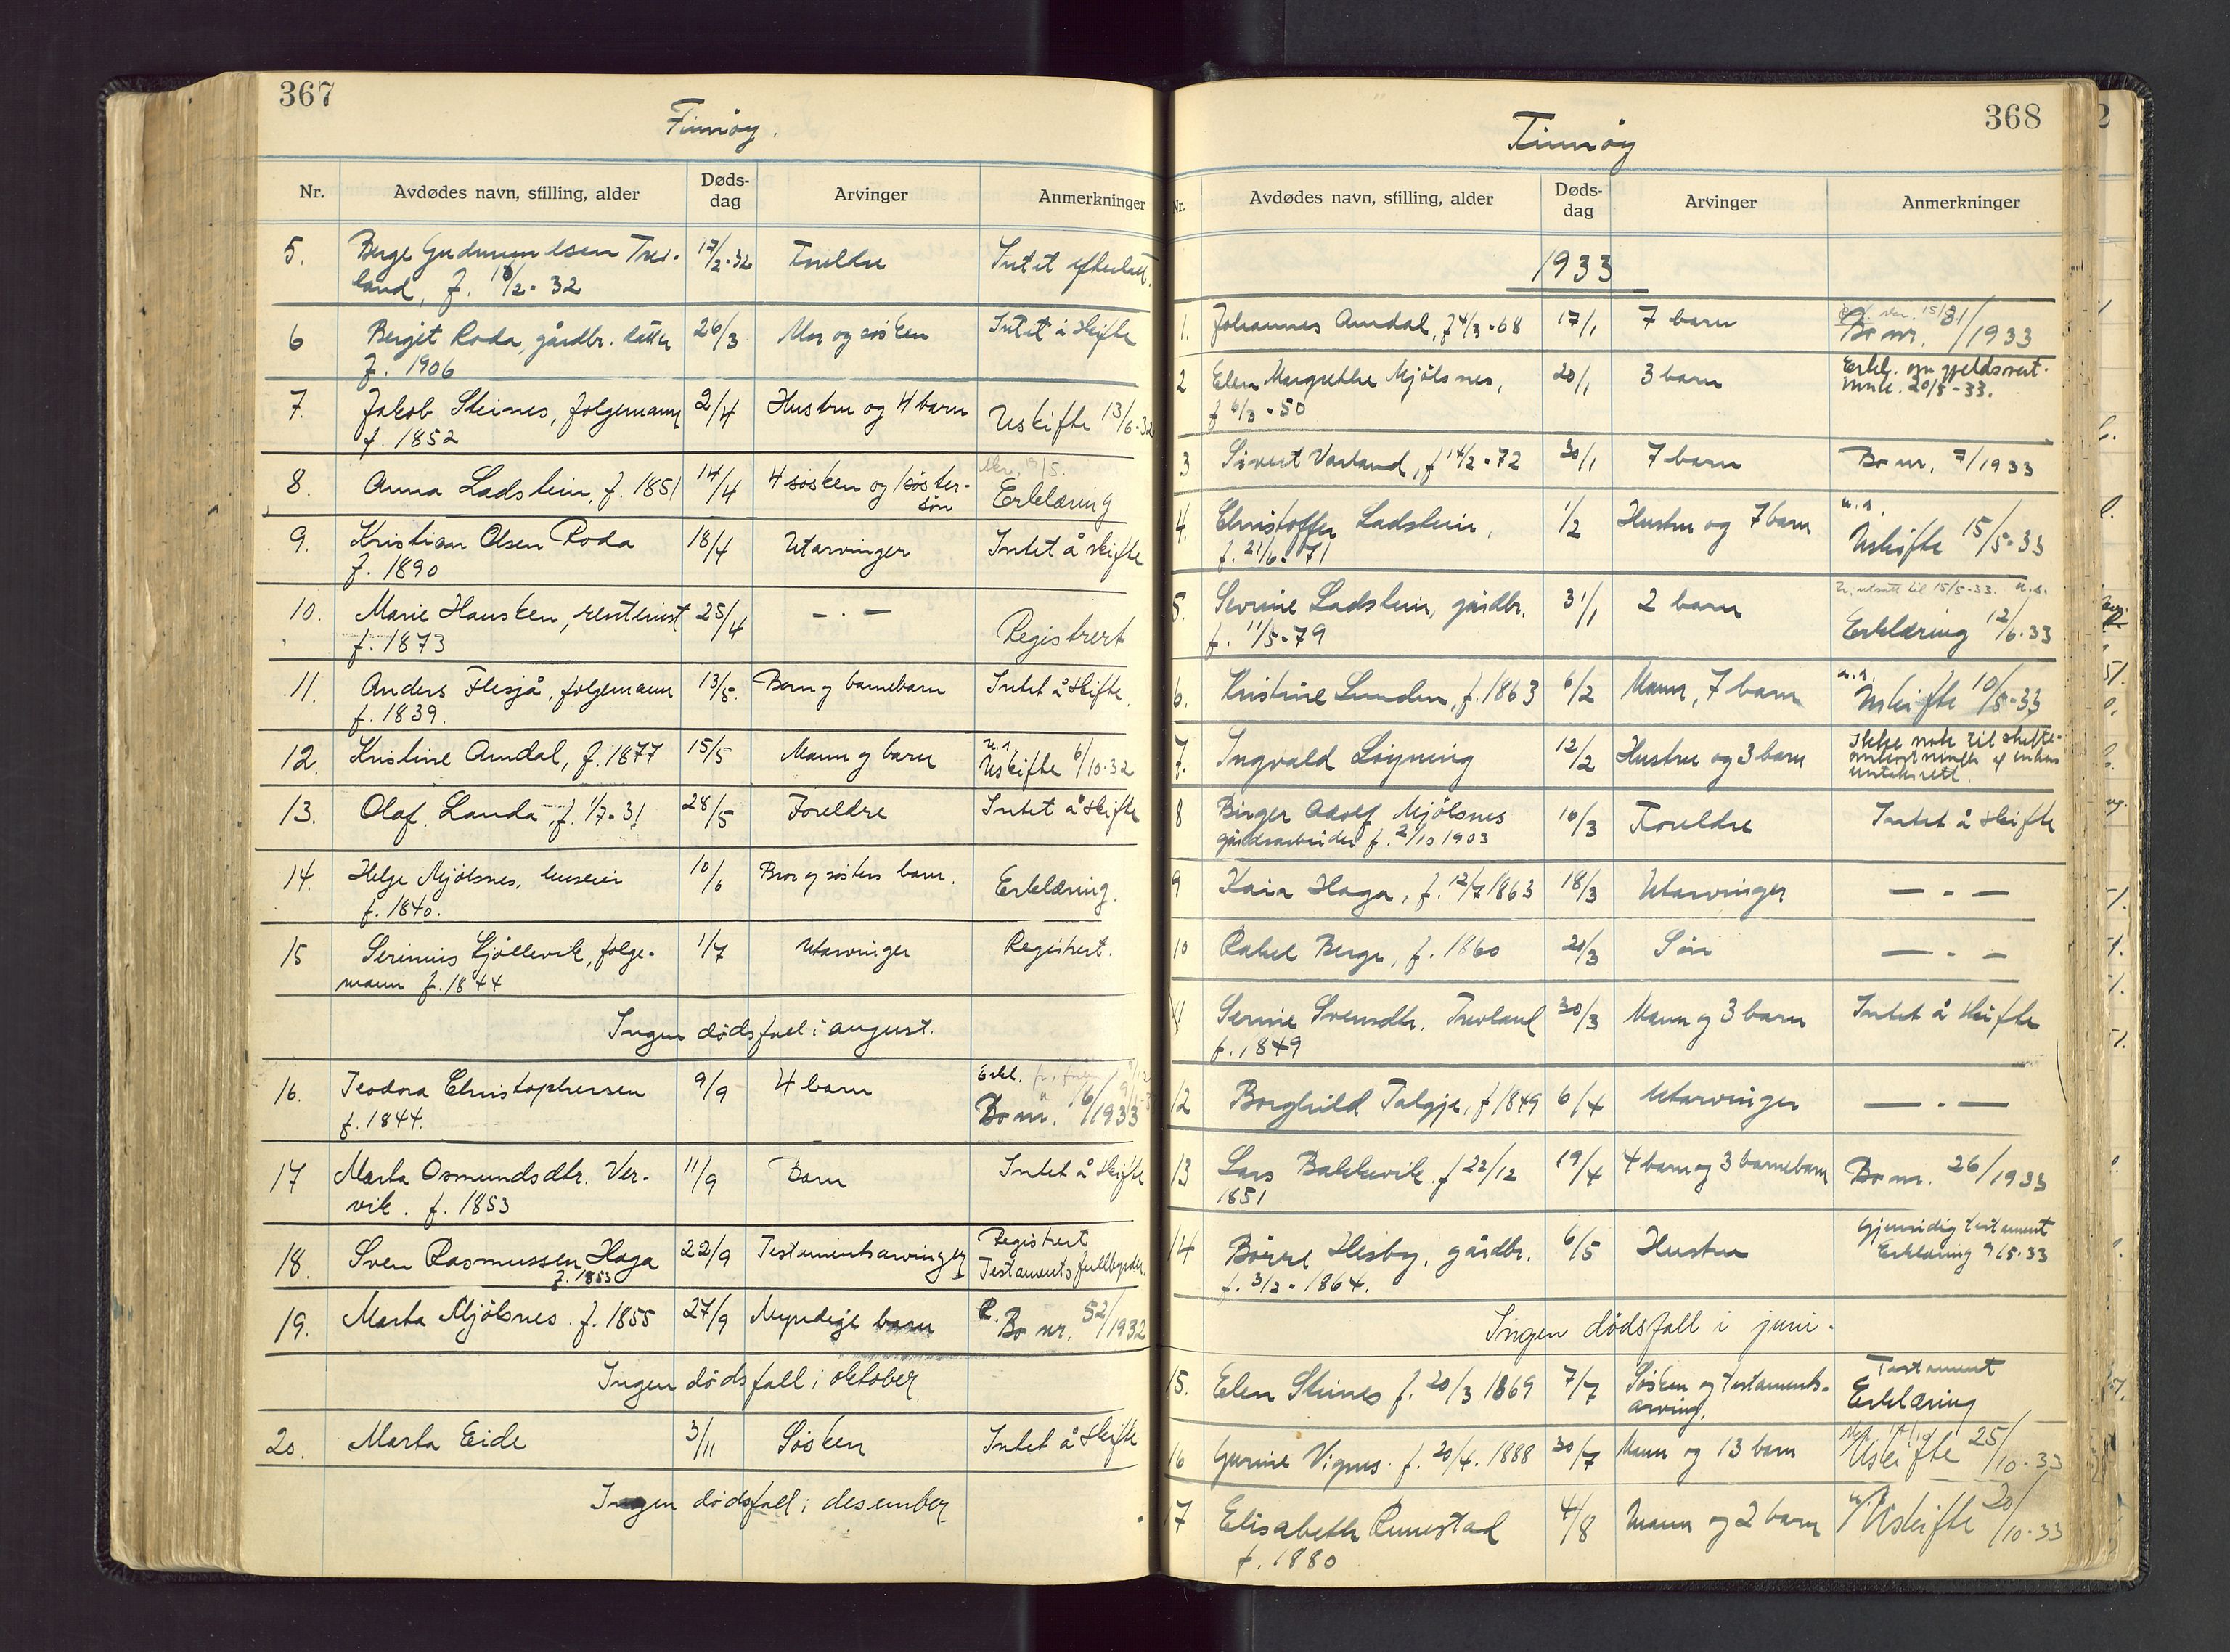 367
Finnøy.
Nr. Avdødes navn, stilling, alder Døds-dag Arvinger Anmerkninger
5. Berge Gudmundsen Trev- 17/2-32 Foreldre Intet efterlatt.
land, f. 2-32
6 Berget Roda, gårdbr. datter 26/3 Mor og søsken Intet å skifte
f. 1906
7. Jakob Steines, følgemann 2/4 Hustru og 4 barn Uskifte 13/6-32
f. 1852
8. Anna Ladstein, f. 1851 14/4 4 søsken og 1 søster- Erklæring
søn
9. Kristian Olsen Roda 18/4 Utarvinger Intet å skifte
f. 1890
10. Marie Hausken, rentenist 25/4 — " — Registrert
f. 1873
11. Anders Flesjå, følgemann 13/5. Barn og barnebarn Intet å skifte.
f. 1839.
12. Kristine Amdal, f. 1877 15/5 Mann og barn u.s. Uskifte 6/10-32
13. Olaf Landa, f. 1/7-31 28/5 Foreldre Intet å skifte
14. Helge Mjølsnes, huseier 10/6 Bror og søsters barn. Erklæring.
f. 1840.
15 Serinius Kjøllevik, følge- 1/7 Utarvinger Registrert.
mann f. 1844
Ingen dødsfall i august.
16. Teodora Christophersen 9/9 4 barn Erkl.
f. 1844. Bo nr. 16/1933
17 Marta Osmundsdtr. Ver- 11/9 Barn Intet å skifte
vik. f. 1853
18. Sven Rasmussen Haga 22/9 Testamentsarvinger Registrert
f. 1853 Testamentsfullbyrder.
19. Marta Mjølsnes. f. 1855 27/9 Myndige barn R. Bo nr. 52/1932
Ingen dødsfall i oktober
20. Marta Eide 3/11 Søsken Intet å skifte
Ingen dødsfall i desember
368
Finnøy
Nr. Avdødes navn, stilling, alder Døds-dag Arvinger Anmerkninger
1933
1. Johannes Amdal, f 4/3-68 17/1 7 barn Bo nr. 31/1933
2 Elen Margrethe Mjølsnes, 20/1 3 barn Erkl. om gjeldsovert-
f 6/3-50 20/5-33.
3 Sivert Varland, f 14/2-72 30/1 7 barn Bo nr. 7/1933
4. Christoffer Ladstein, 1/2 Hustru og 7 barn u.s. Uskifte 15/5-33
f. 21/6-71
5. Serine Ladstein, gårdbr. 31/1 2 barn utsatt til 15/5-33. u.s.
f. 11/5-79 Erklæring 12/6-33
6. Kristine Lunden, f. 1863 6/2 Mann, 7 barn u.s. Uskifte 10/5-33
7. Ingvald Løyning 12/2 Hustru og 3 barn Ikke nok til skifte-
8 Birger Adolf Mjølsnes 16/3 Foreldre Intet å skifte
gårdsarbeider f. 2/10 1903
9 Kaia Haga, f. 12/7 1863 18/3 Utarvinger — " —
10 Rakel Berge, f. 1860 20/3 Søn — " —
11 Serine Svensdtr. Trevland 30/3 Mann og 3 barn Intet å skifte
f. 1849
12 Borghild Talgje, f 1849 6/4 Utarvinger — " —
13 Lars Bakkevik. f 22/12 19/4 4 barn og 3 barnebarn Bo nr. 26/1933
1851
14 Børre Hesby, gårdbr. 6/5 Hustru Gjensidig testament
f. 3/2-1864. Erklæring 9/5-33
Ingen dødsfall i juni.
15. Elen Steines f. 20/3 1869 7/7 Søsken og testaments- Testament
arving. Erklæring
16 Gurine Vignes. f. 20/4. 1888 30/7 Mann og 13 barn Uskifte 25/10-33
17 Elisabeth Runestad 4/8 Mann og 2 barn u.s. Uskifte 20/10-33
f. 1880